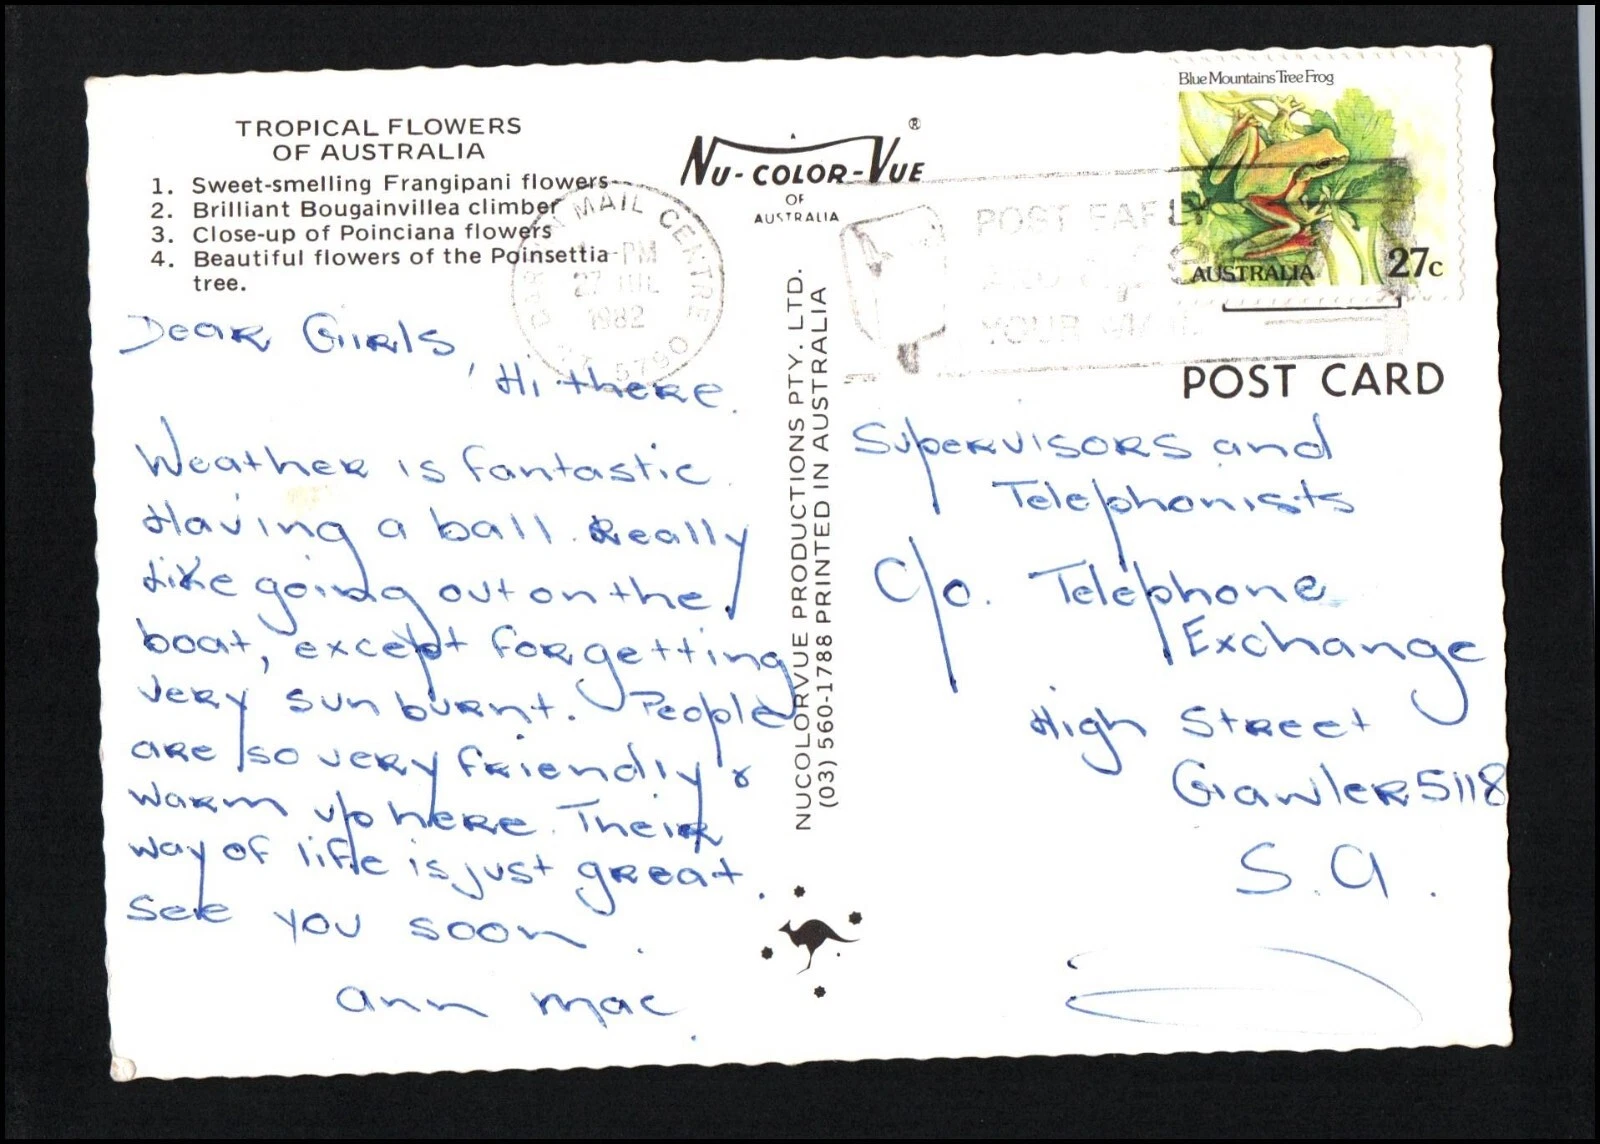 TROPICAL FLOWERS
OF AUSTRALIA
1. Sweet-smelling Frangipani flowers
2. Brilliant Bougainvillea climber
3. Close-up of Poinciana flowers
4. Beautiful flowers of the Poinsettia
tree.
Dear Girls,
Hi there.
Weather is fantastic.
Having a ball. Really
like going out on the
boat, except for getting
very sunburnt. People
are so very friendly &
warm up here. Their
way of life is just great.
See you soon.
Ann Mac.
NU-COLOR-VUE ®
OF
AUSTRALIA
NUCOLORVUE PRODUCTIONS PTY. LTD.
(03) 560-1788 PRINTED IN AUSTRALIA
MAIL CENTRE
PM
27 JUL
1982
5790
POST EARLY
YOUR MAIL
Blue Mountains Tree Frog
AUSTRALIA 27c
POST CARD
Supervisors and
Telephonists
C/o. Telephone
Exchange
High Street
Gawler 5118
S.A.